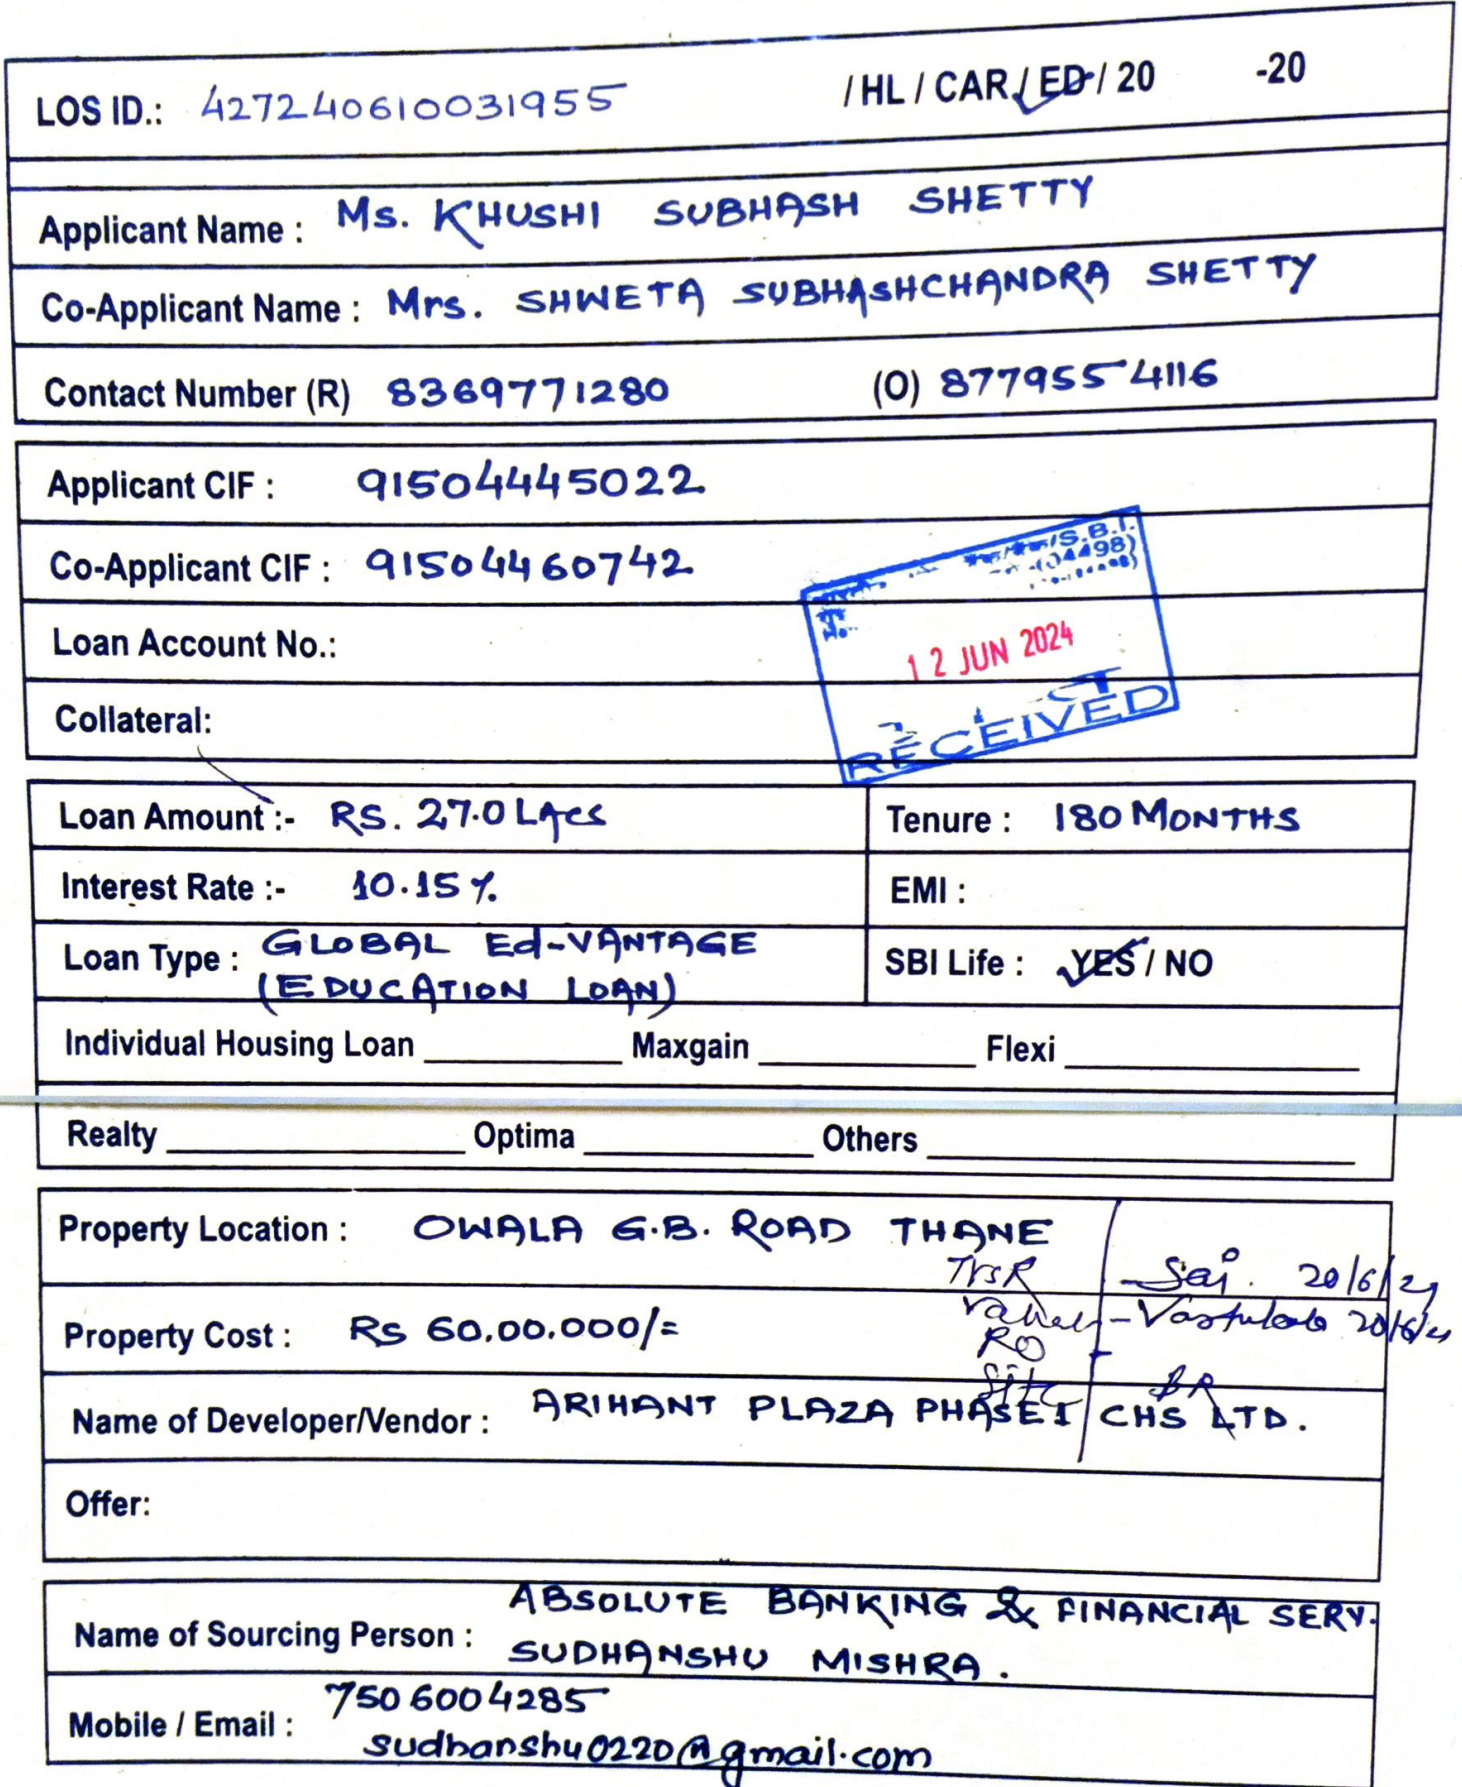 LOS ID.: 427240610031955 / HL / CAR / ED / 20 -20
Applicant Name : Ms. KHUSHI SUBHASH SHETTY
Co-Applicant Name : Mrs. SHWETA SUBHASHCHANDRA SHETTY
Contact Number (R) 8369771280 (O) 8779554116
Applicant CIF : 91504445022
Co-Applicant CIF : 91504460742
/S.B.I.
(04498)
Loan Account No.:
12 JUN 2024
Collateral:
RECEIVED
Loan Amount :- RS. 27.0 LACS Tenure : 180 MONTHS
Interest Rate :- 10.15 % EMI :
Loan Type : GLOBAL Ed-VANTAGE
(EDUCATION LOAN) SBI Life : YES / NO
Individual Housing Loan Maxgain Flexi
Realty Optima Others
Property Location : OWALA G.B. ROAD THANE
TrSR - Sai. 20/6/24
Property Cost : RS 60,00,000/=
20/6/24
RO
Site BR
Name of Developer/Vendor : ARIHANT PLAZA PHASE I CHS LTD.
Offer:
Name of Sourcing Person : ABSOLUTE BANKING & FINANCIAL SERV.
SUDHANSHU MISHRA.
Mobile / Email : 7506004285
sudhanshu0220@gmail.com